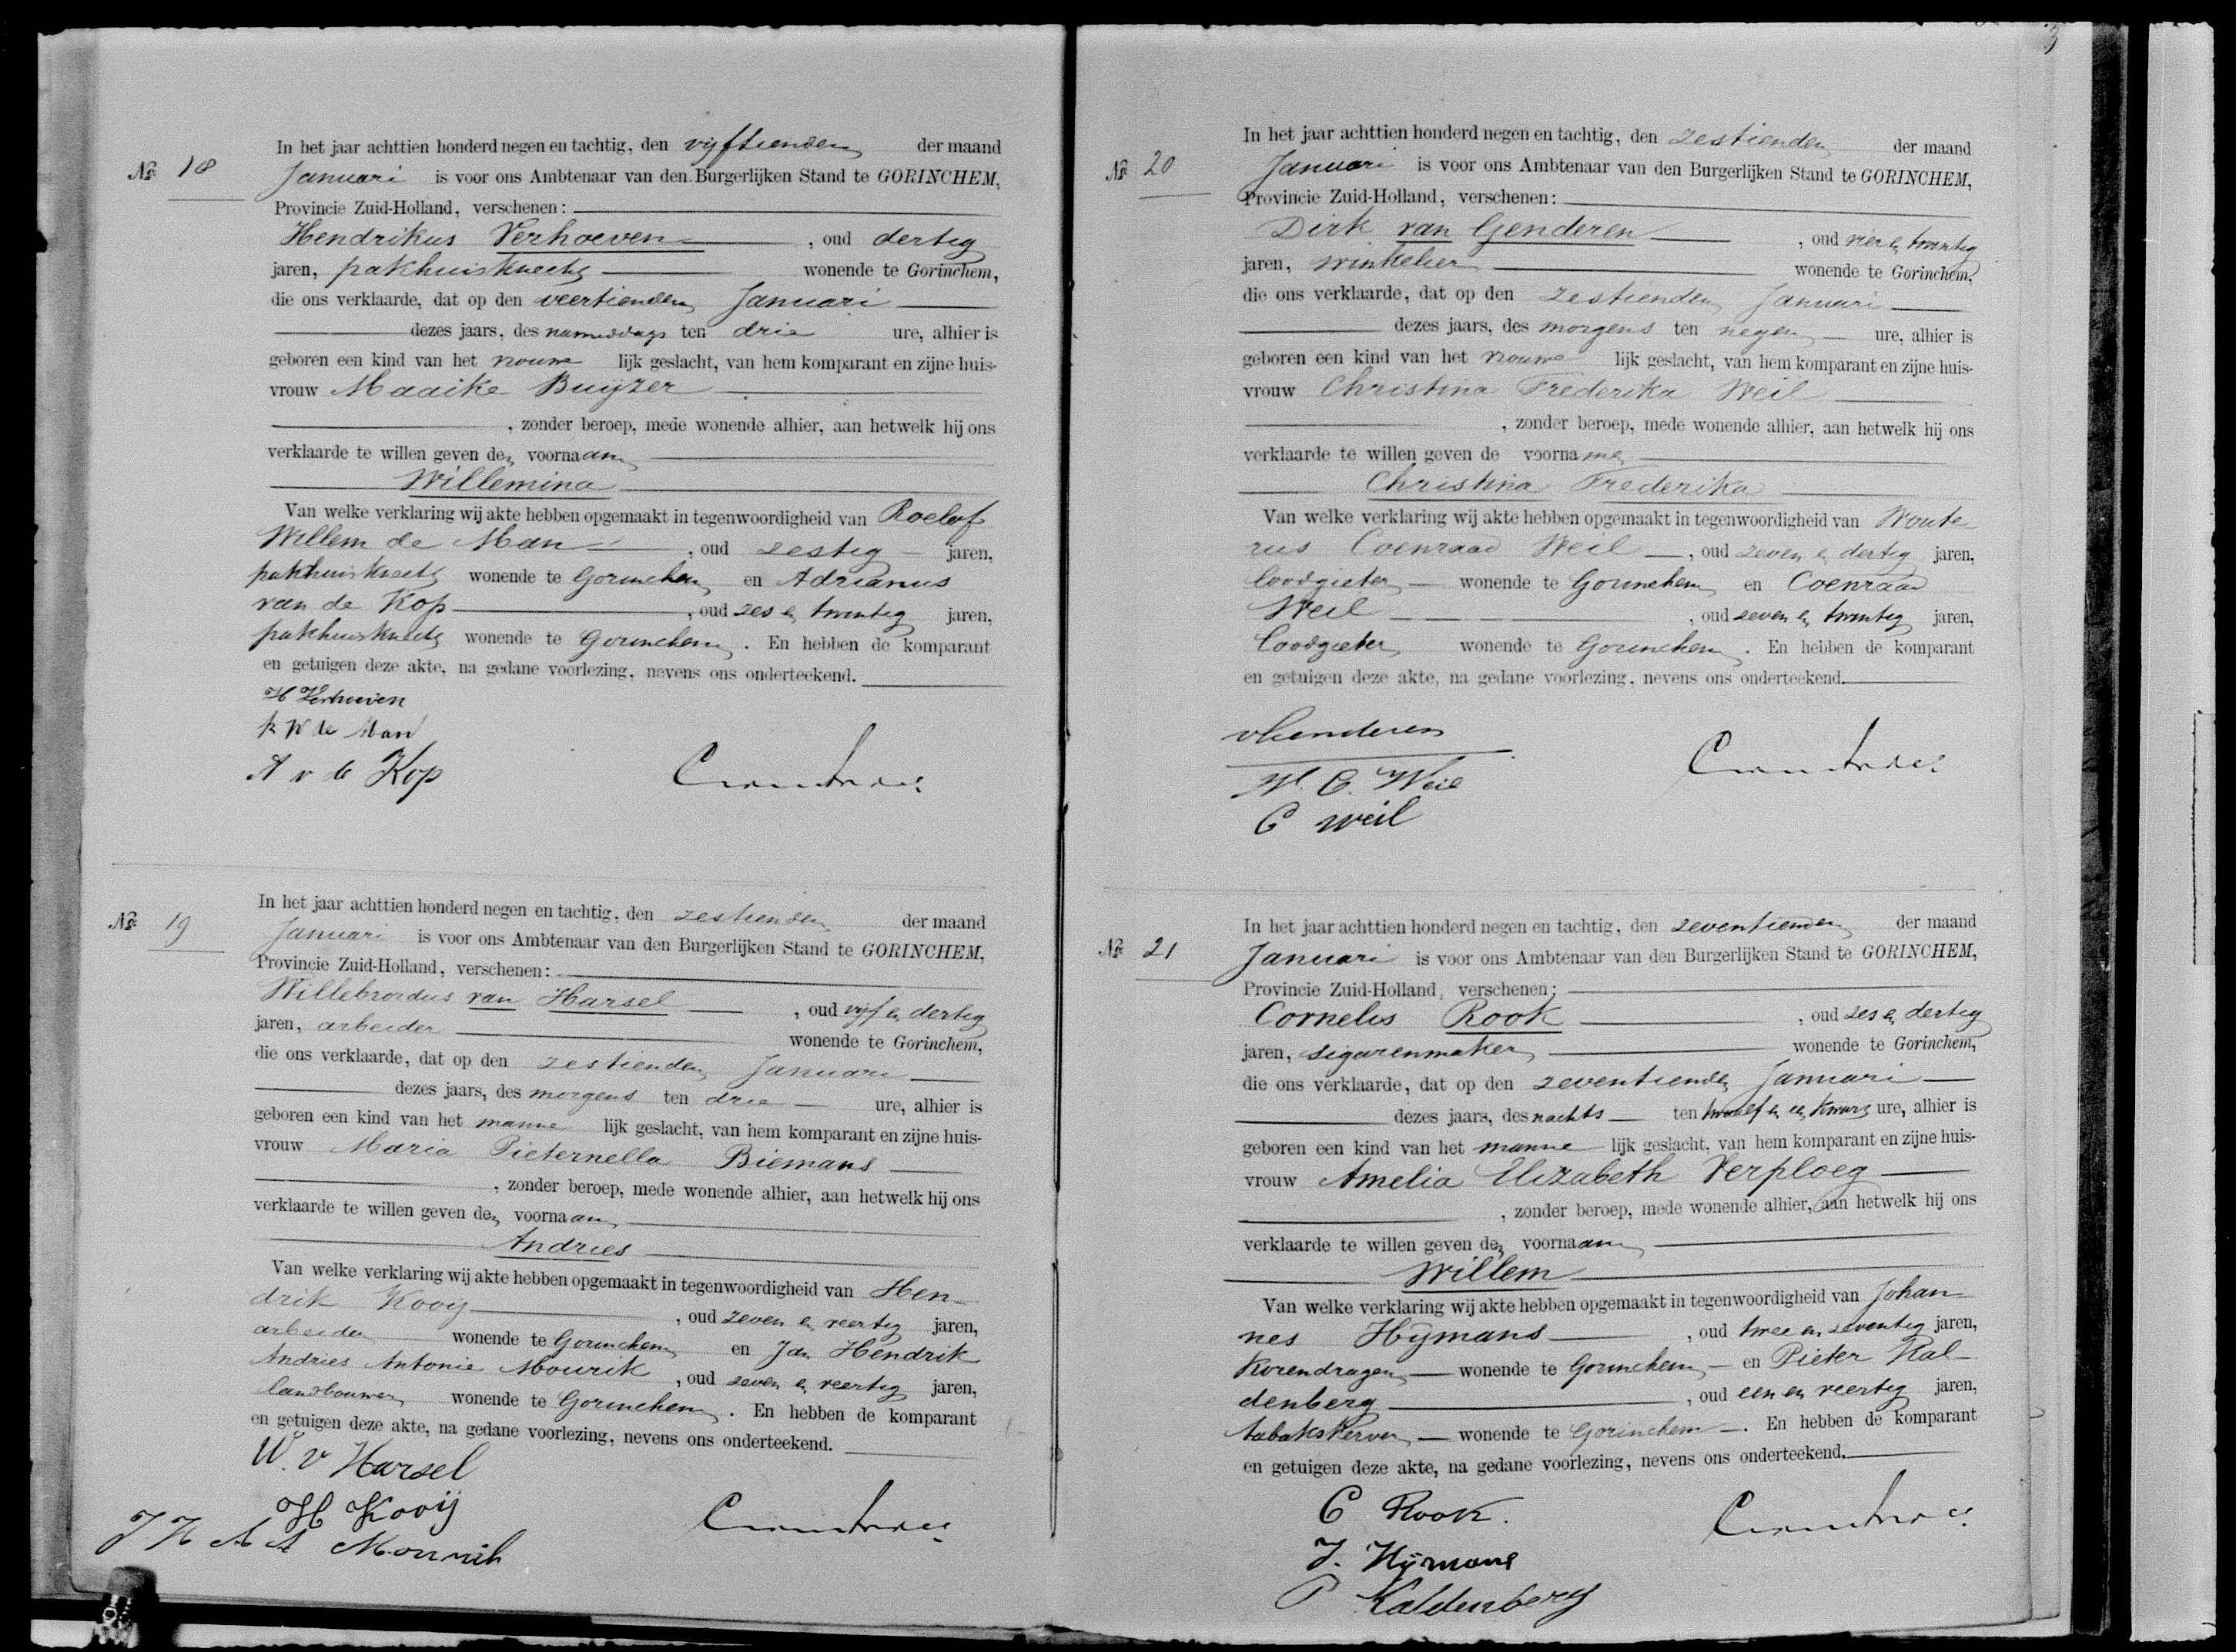 In het jaar achttien honderd negen en tachtig, den vijftienden der maand
No. 18 Januari is voor ons Ambtenaar van den Burgerlijken Stand te GORINCHEM,
Provincie Zuid-Holland, verschenen:
Hendrikus Verhoeven, oud dertig
jaren, pakhuisknecht wonende te Gorinchem,
die ons verklaarde, dat op den veertienden Januari
dezes jaars, des namiddags ten drie ure, alhier is
geboren een kind van het vrouwe lijk geslacht, van hem komparant en zijne huis-
vrouw Maaike Buijzer
, zonder beroep, mede wonende alhier, aan hetwelk hij ons
verklaarde te willen geven den voornaam
Willemina
Van welke verklaring wij akte hebben opgemaakt in tegenwoordigheid van Roelof
Willem de Man, oud zestig jaren,
pakhuisknecht wonende te Gorinchem en Adrianus
van de Kop, oud zes en twintig jaren,
pakhuisknecht wonende te Gorinchem. En hebben de komparant
en getuigen deze akte, na gedane voorlezing, nevens ons onderteekend.
H Verhoeven
R W de Man
A v de Kop
In het jaar achttien honderd negen en tachtig, den zestienden der maand
No. 19 Januari is voor ons Ambtenaar van den Burgerlijken Stand te GORINCHEM,
Provincie Zuid-Holland, verschenen:
Willebrordus van Harsel, oud vijf en dertig
jaren, arbeider wonende te Gorinchem,
die ons verklaarde, dat op den zestienden Januari
dezes jaars, des morgens ten drie ure, alhier is
geboren een kind van het manne lijk geslacht, van hem komparant en zijne huis-
vrouw Maria Pieternella Biemans
, zonder beroep, mede wonende alhier, aan hetwelk hij ons
verklaarde te willen geven den voornaam
Andries
Van welke verklaring wij akte hebben opgemaakt in tegenwoordigheid van Hen-
drik Kooij, oud zeven en veertig jaren,
arbeider wonende te Gorinchem en Jan Hendrik
Andries Antonie Mourik, oud zeven en veertig jaren,
landbouwer wonende te Gorinchem. En hebben de komparant
en getuigen deze akte, na gedane voorlezing, nevens ons onderteekend.
W. v Harsel
H Kooij
J H A A Mourik
In het jaar achttien honderd negen en tachtig, den zestienden der maand
No. 20 Januari is voor ons Ambtenaar van den Burgerlijken Stand te GORINCHEM,
Provincie Zuid-Holland, verschenen:
Dirk van Genderen, oud vier en twintig
jaren, winkelier wonende te Gorinchem,
die ons verklaarde, dat op den zestienden Januari
dezes jaars, des morgens ten negen ure, alhier is
geboren een kind van het vrouwe lijk geslacht, van hem komparant en zijne huis-
vrouw Christina Frederika Weil
, zonder beroep, mede wonende alhier, aan hetwelk hij ons
verklaarde te willen geven de voorname
Christina Frederika
Van welke verklaring wij akte hebben opgemaakt in tegenwoordigheid van Woute-
rus Coenraad Weil, oud zeven en dertig jaren,
loodgieter wonende te Gorinchem en Coenraad
Weil, oud zeven en twintig jaren,
loodgieter wonende te Gorinchem. En hebben de komparant
en getuigen deze akte, na gedane voorlezing, nevens ons onderteekend.
vGenderen
W. C. Weil
C Weil
In het jaar achttien honderd negen en tachtig, den zeventienden der maand
No. 21 Januari is voor ons Ambtenaar van den Burgerlijken Stand te GORINCHEM,
Provincie Zuid-Holland, verschenen:
Cornelis Rook, oud zes en dertig
jaren, sigarenmaker wonende te Gorinchem,
die ons verklaarde, dat op den zeventienden Januari
dezes jaars, des nachts ten twaalf en een kwart ure, alhier is
geboren een kind van het manne lijk geslacht, van hem komparant en zijne huis-
vrouw Amelia Elizabeth Verploeg
, zonder beroep, mede wonende alhier, aan hetwelk hij ons
verklaarde te willen geven den voornaam
Willem
Van welke verklaring wij akte hebben opgemaakt in tegenwoordigheid van Johan-
nes Hijmans, oud twee en zeventig jaren,
korendrager wonende te Gorinchem en Pieter Kal-
denberg, oud een en veertig jaren,
tabakskerver wonende te Gorinchem. En hebben de komparant
en getuigen deze akte, na gedane voorlezing, nevens ons onderteekend.
C Rook.
J. Hijmans
P Kaldenberg